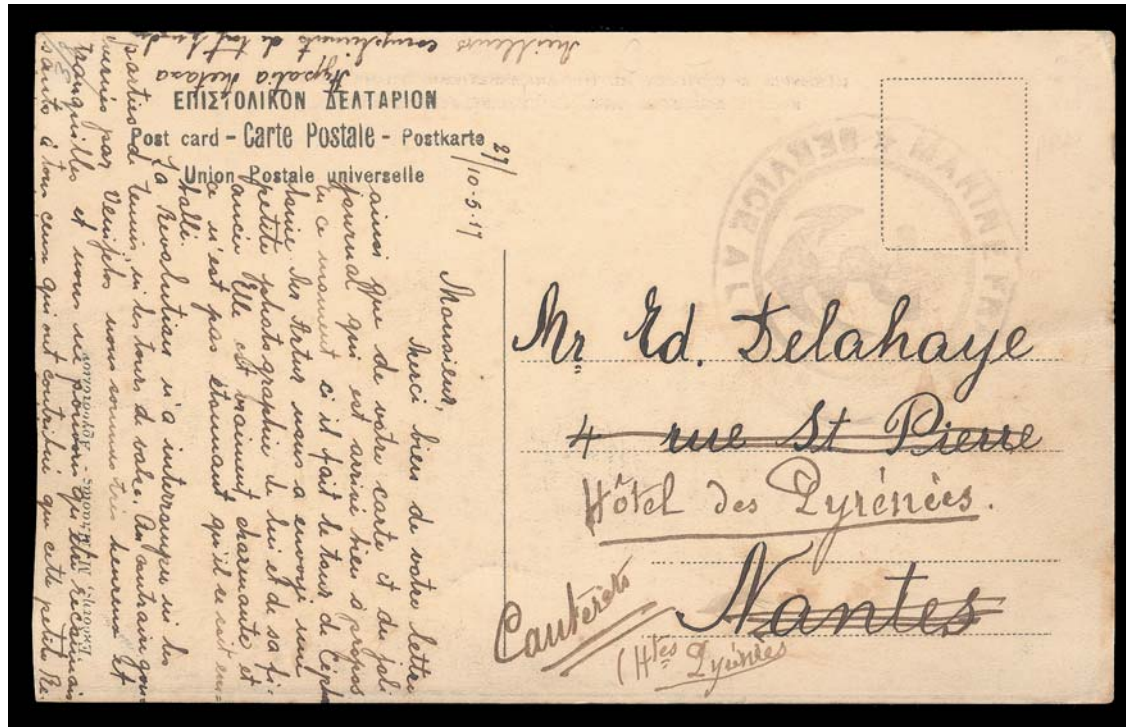 ΕΠΙΣΤΟΛΙΚΟΝ ΔΕΛΤΑΡΙΟΝ
Post card - Carte Postale - Postkarte
Union Postale universelle
27/10-5-17
Monsieur,
Merci bien de votre lettre
ainsi que de votre carte et du joli
journal qui est arrivé bien à propos
en ce moment ci il fait le tour de Céph
alonie. Mr Artur nous a envoyé une
petite photographie de lui et de sa fi-
ancée Elle est vraiment charmante et
ce n'est pas étonnant qu'il se soit em-
ballé.
La Révolution n'a interrompu ni les
parties de tennis, ni les tours de valse. Au contraire gou-
vernés par Venizelos nous sommes très heureux et
tranquilles et nous ne pouvons qu'être reconnais
sants à tous ceux qui ont contribué qui cette petite Ré-
Meilleurs compliments de tout
Hypatia Metaxa
Mr Ed. Delahaye
4 rue St Pierre
Hôtel des Pyrénées.
Nantes
Cauterets
(Htes Pyrénées